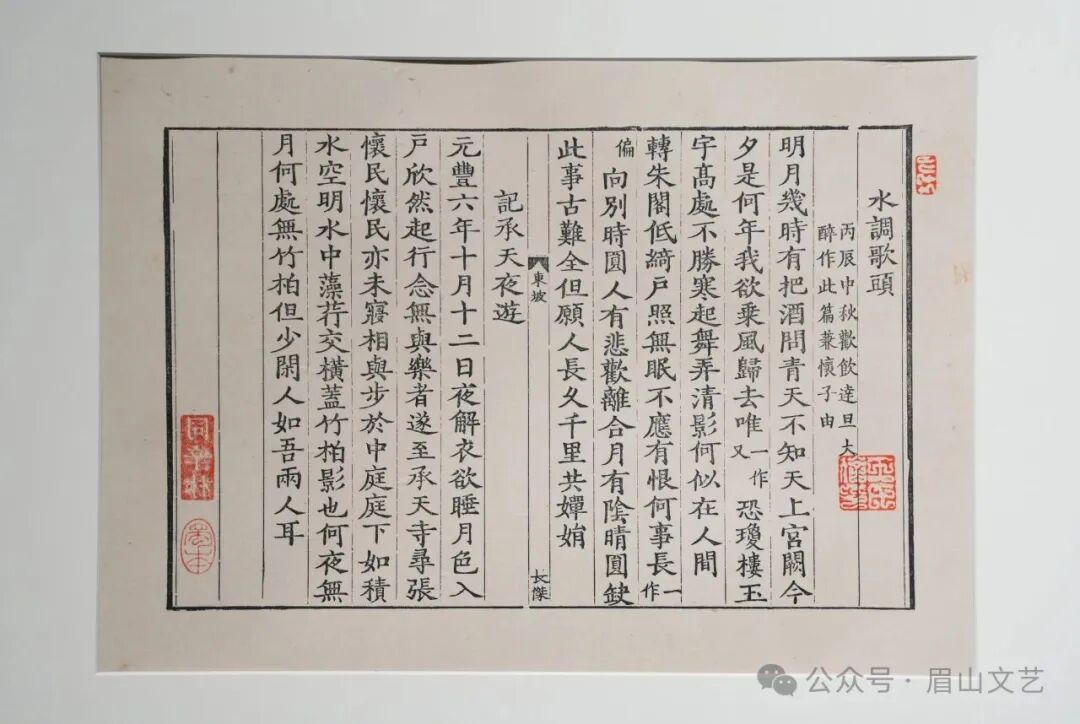 水調歌頭
丙辰中秋歡飲達旦大
醉作此篇兼懷子由
明月幾時有把酒問青天不知天上宮闕今
夕是何年我欲乘風歸去唯一作又恐瓊樓玉
宇高處不勝寒起舞弄清影何似在人間
轉朱閣低綺戶照無眠不應有恨何事長一作
偏向別時圓人有悲歡離合月有陰晴圓缺
此事古難全但願人長久千里共嬋娟
東坡
長傑
記承天夜遊
元豐六年十月十二日夜解衣欲睡月色入
戶欣然起行念無與樂者遂至承天寺尋張
懷民懷民亦未寢相與步於中庭庭下如積
水空明水中藻荇交橫蓋竹柏影也何夜無
月何處無竹柏但少閑人如吾兩人耳
公众号·眉山文艺